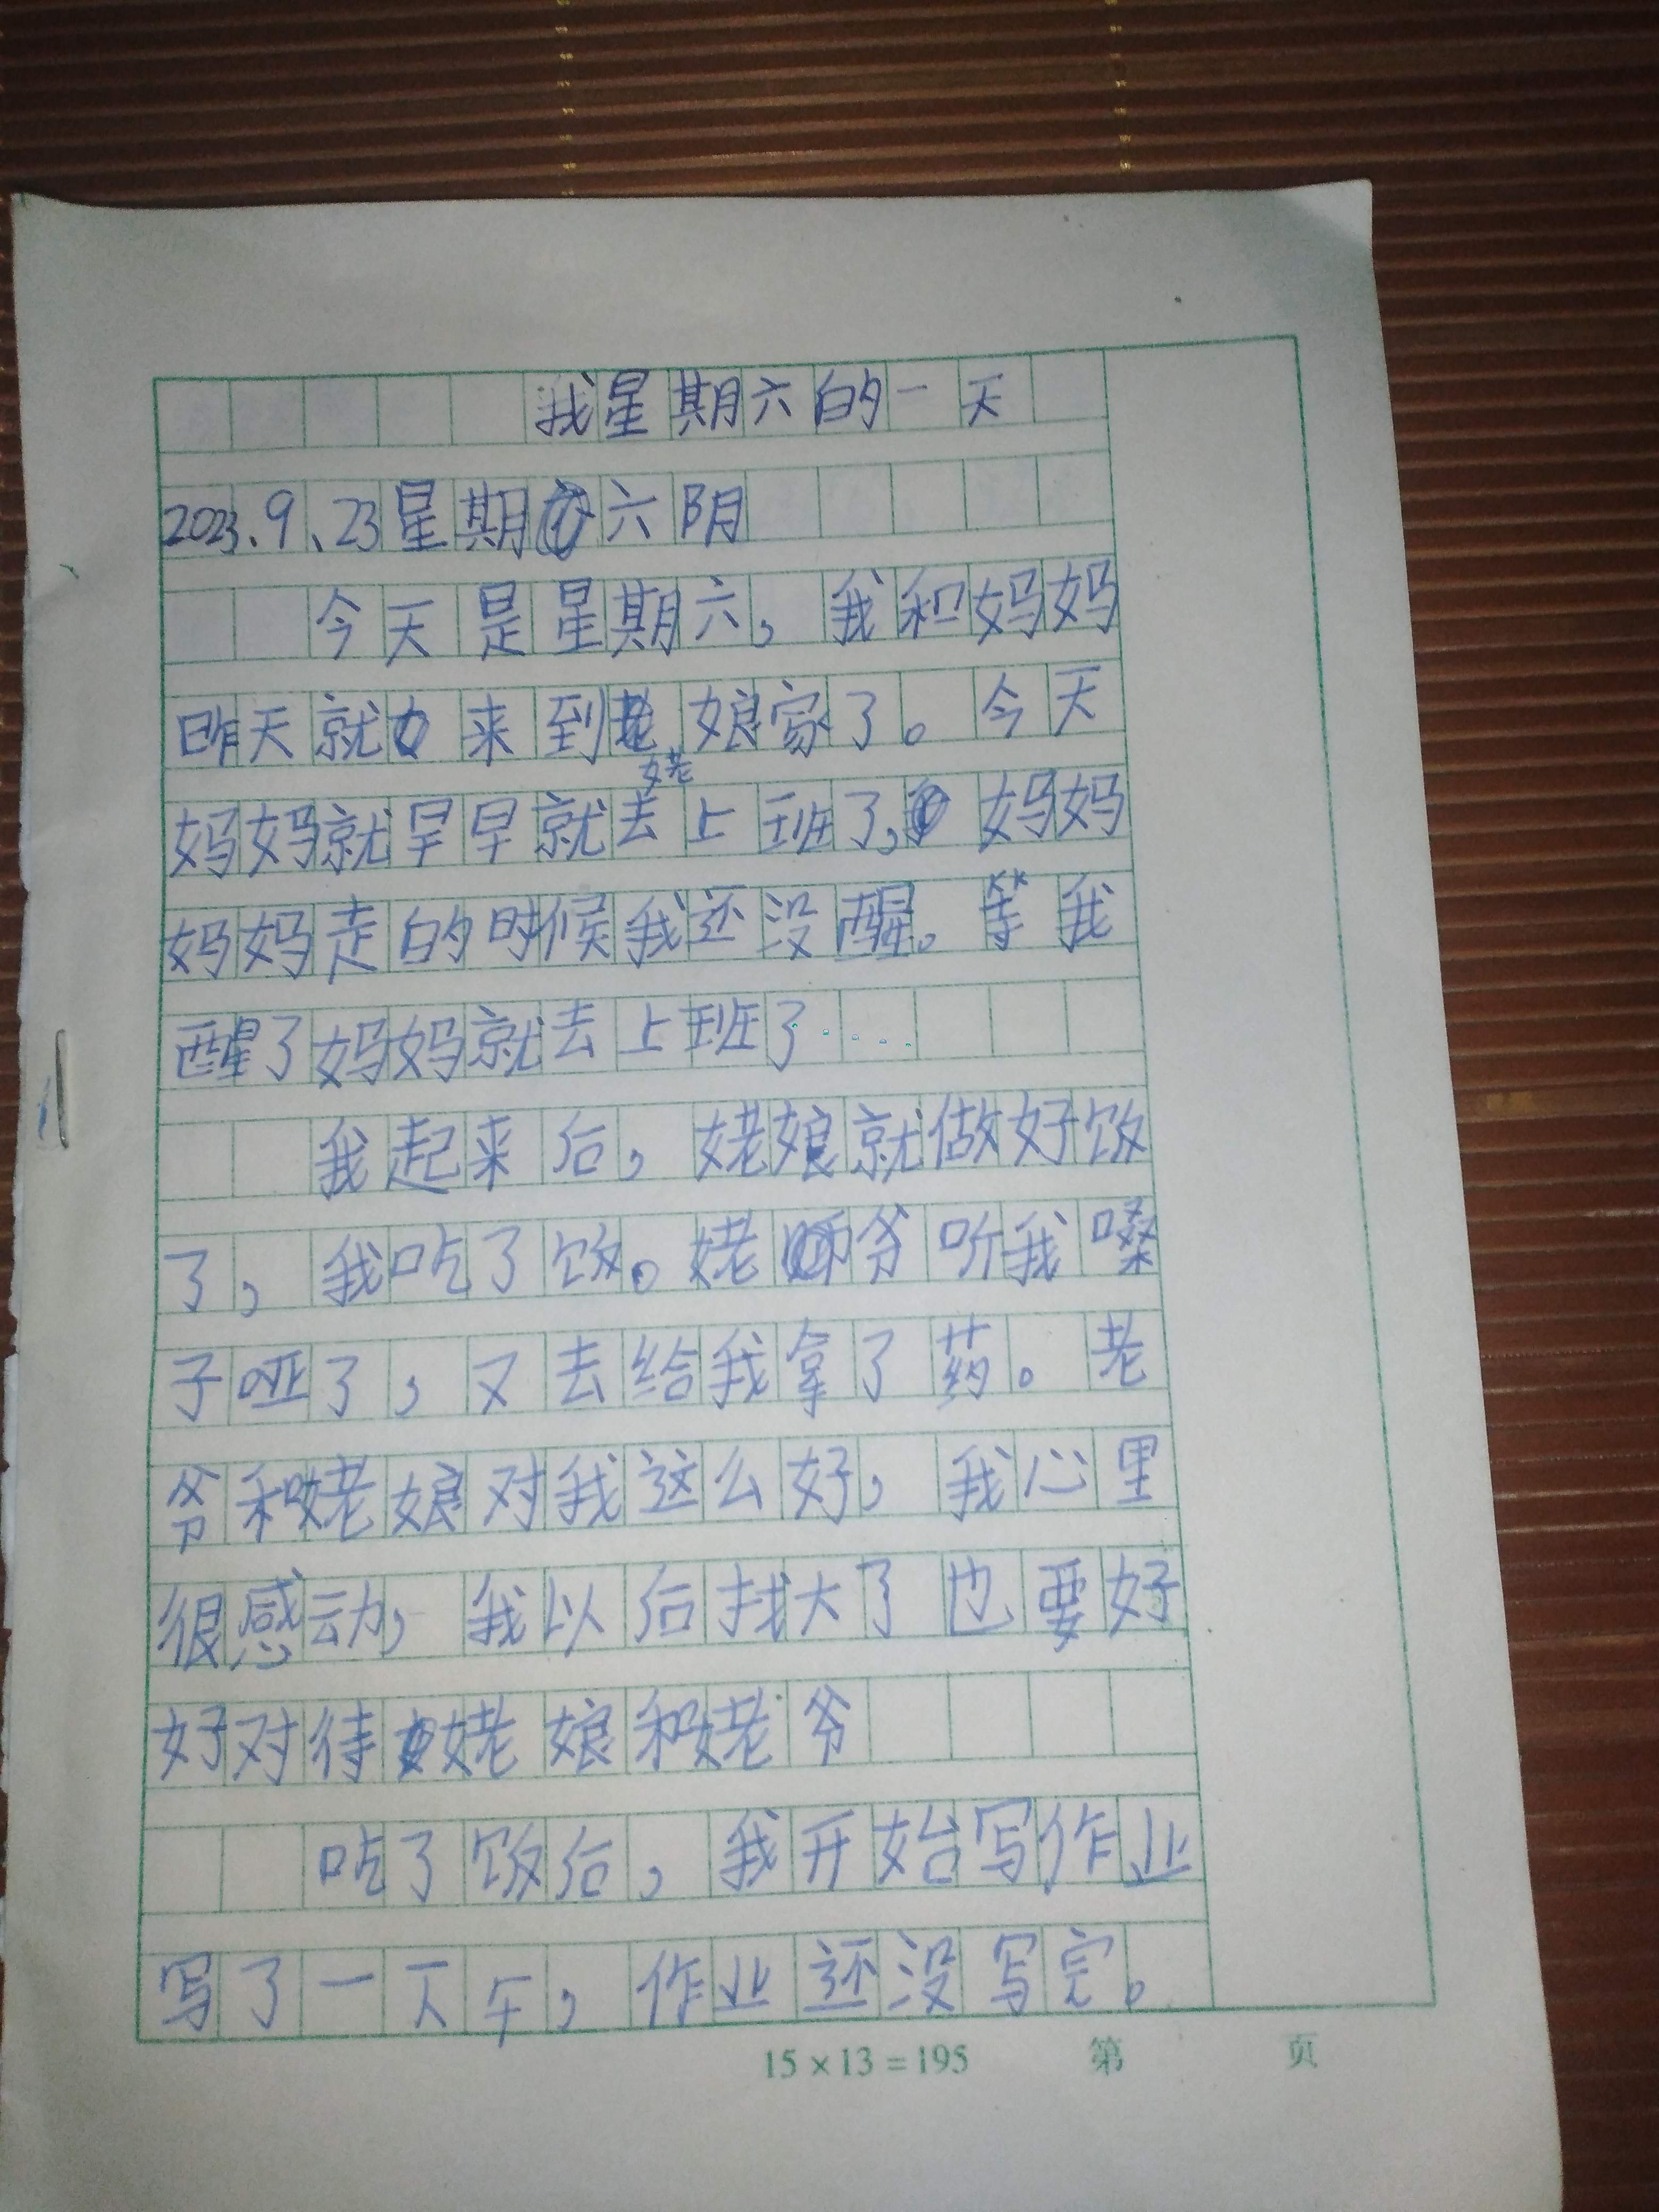 我星期六的一天
2023.9.23星期六阴
今天是星期六，我和妈妈
昨天就来到姥娘家了。今天
妈妈就早早就去上班了，妈妈
妈妈走的时候我还没醒。等我
醒了妈妈就去上班了……
我起来后，姥娘就做好饭
了，我吃了饭。姥爷听我嗓
子哑了，又去给我拿了药。老
爷和姥娘对我这么好，我心里
很感动，我以后找大了也要好
好对待姥娘和姥爷
吃了饭后，我开始写作业
写了一下午，作业还没写完。
15×13=195 第 页